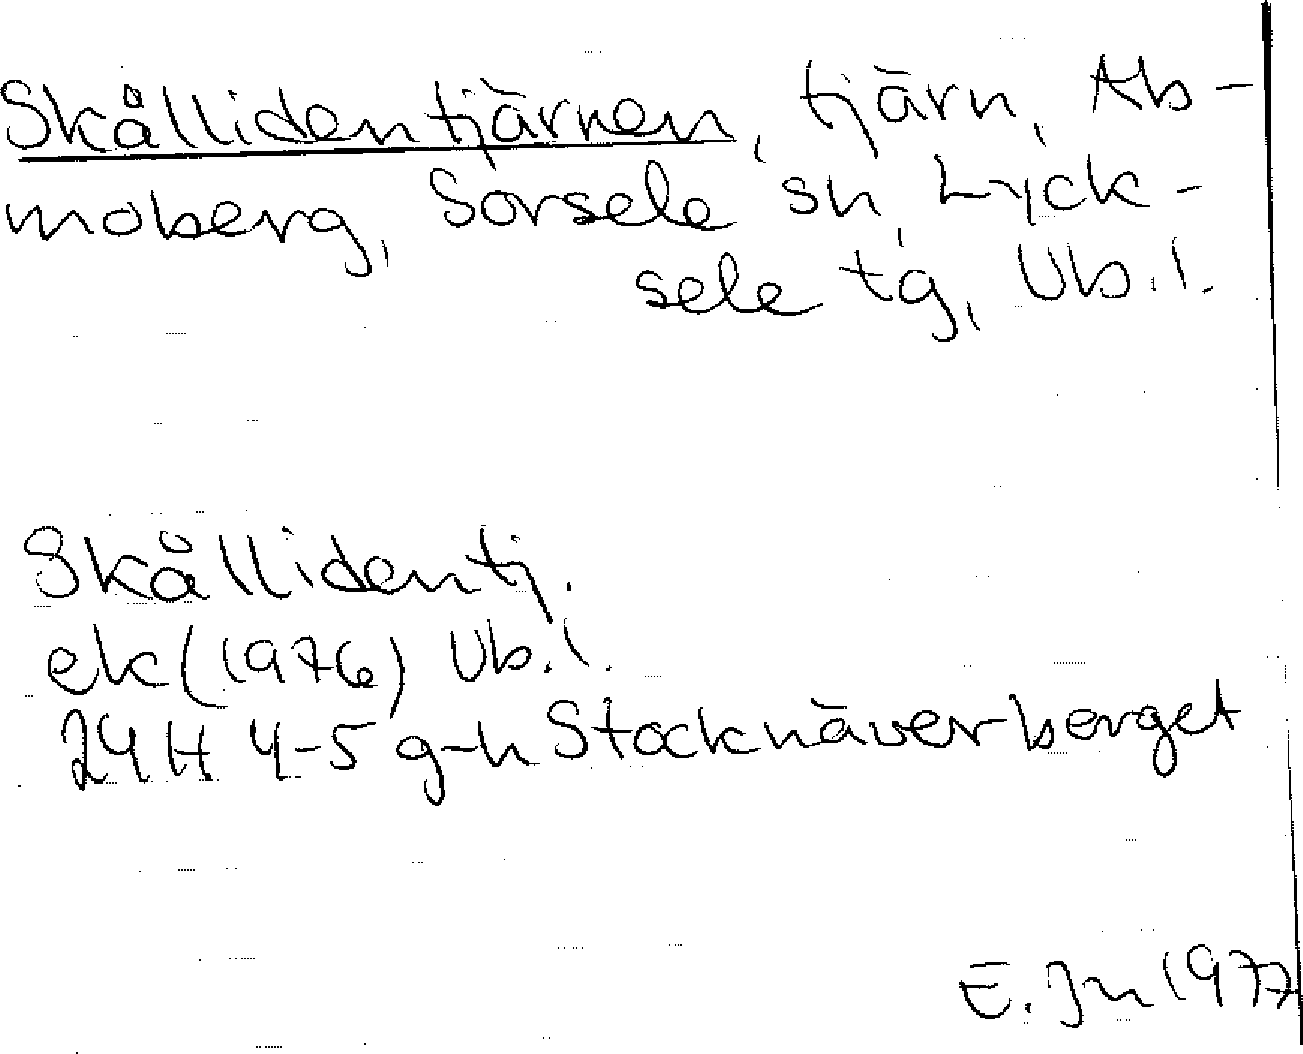 Skållidentjärnen, tjärn, Ab-
moberg, Sorsele sn, Lyck-
sele tg, Vb.l.
Skållidentj.
ek (1976) Vb.l.
24H 4-5 g-h Stocknäverberget
E. Jn 1977